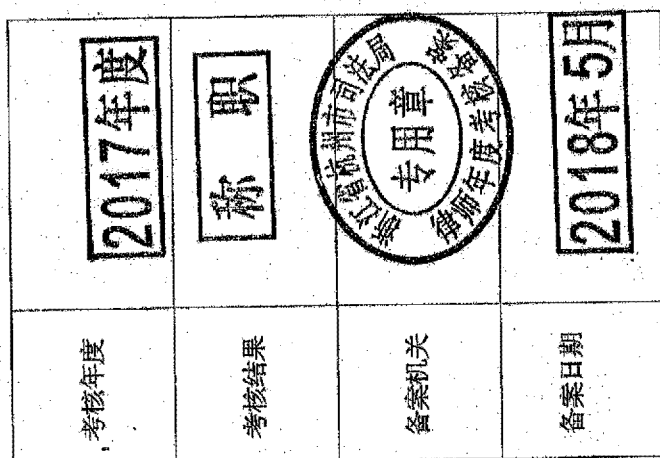 考核年度
2017年度
考核结果
称职
备案机关
浙江省杭州市司法局
专用章
律师年度考核备案
备案日期
2018年5月